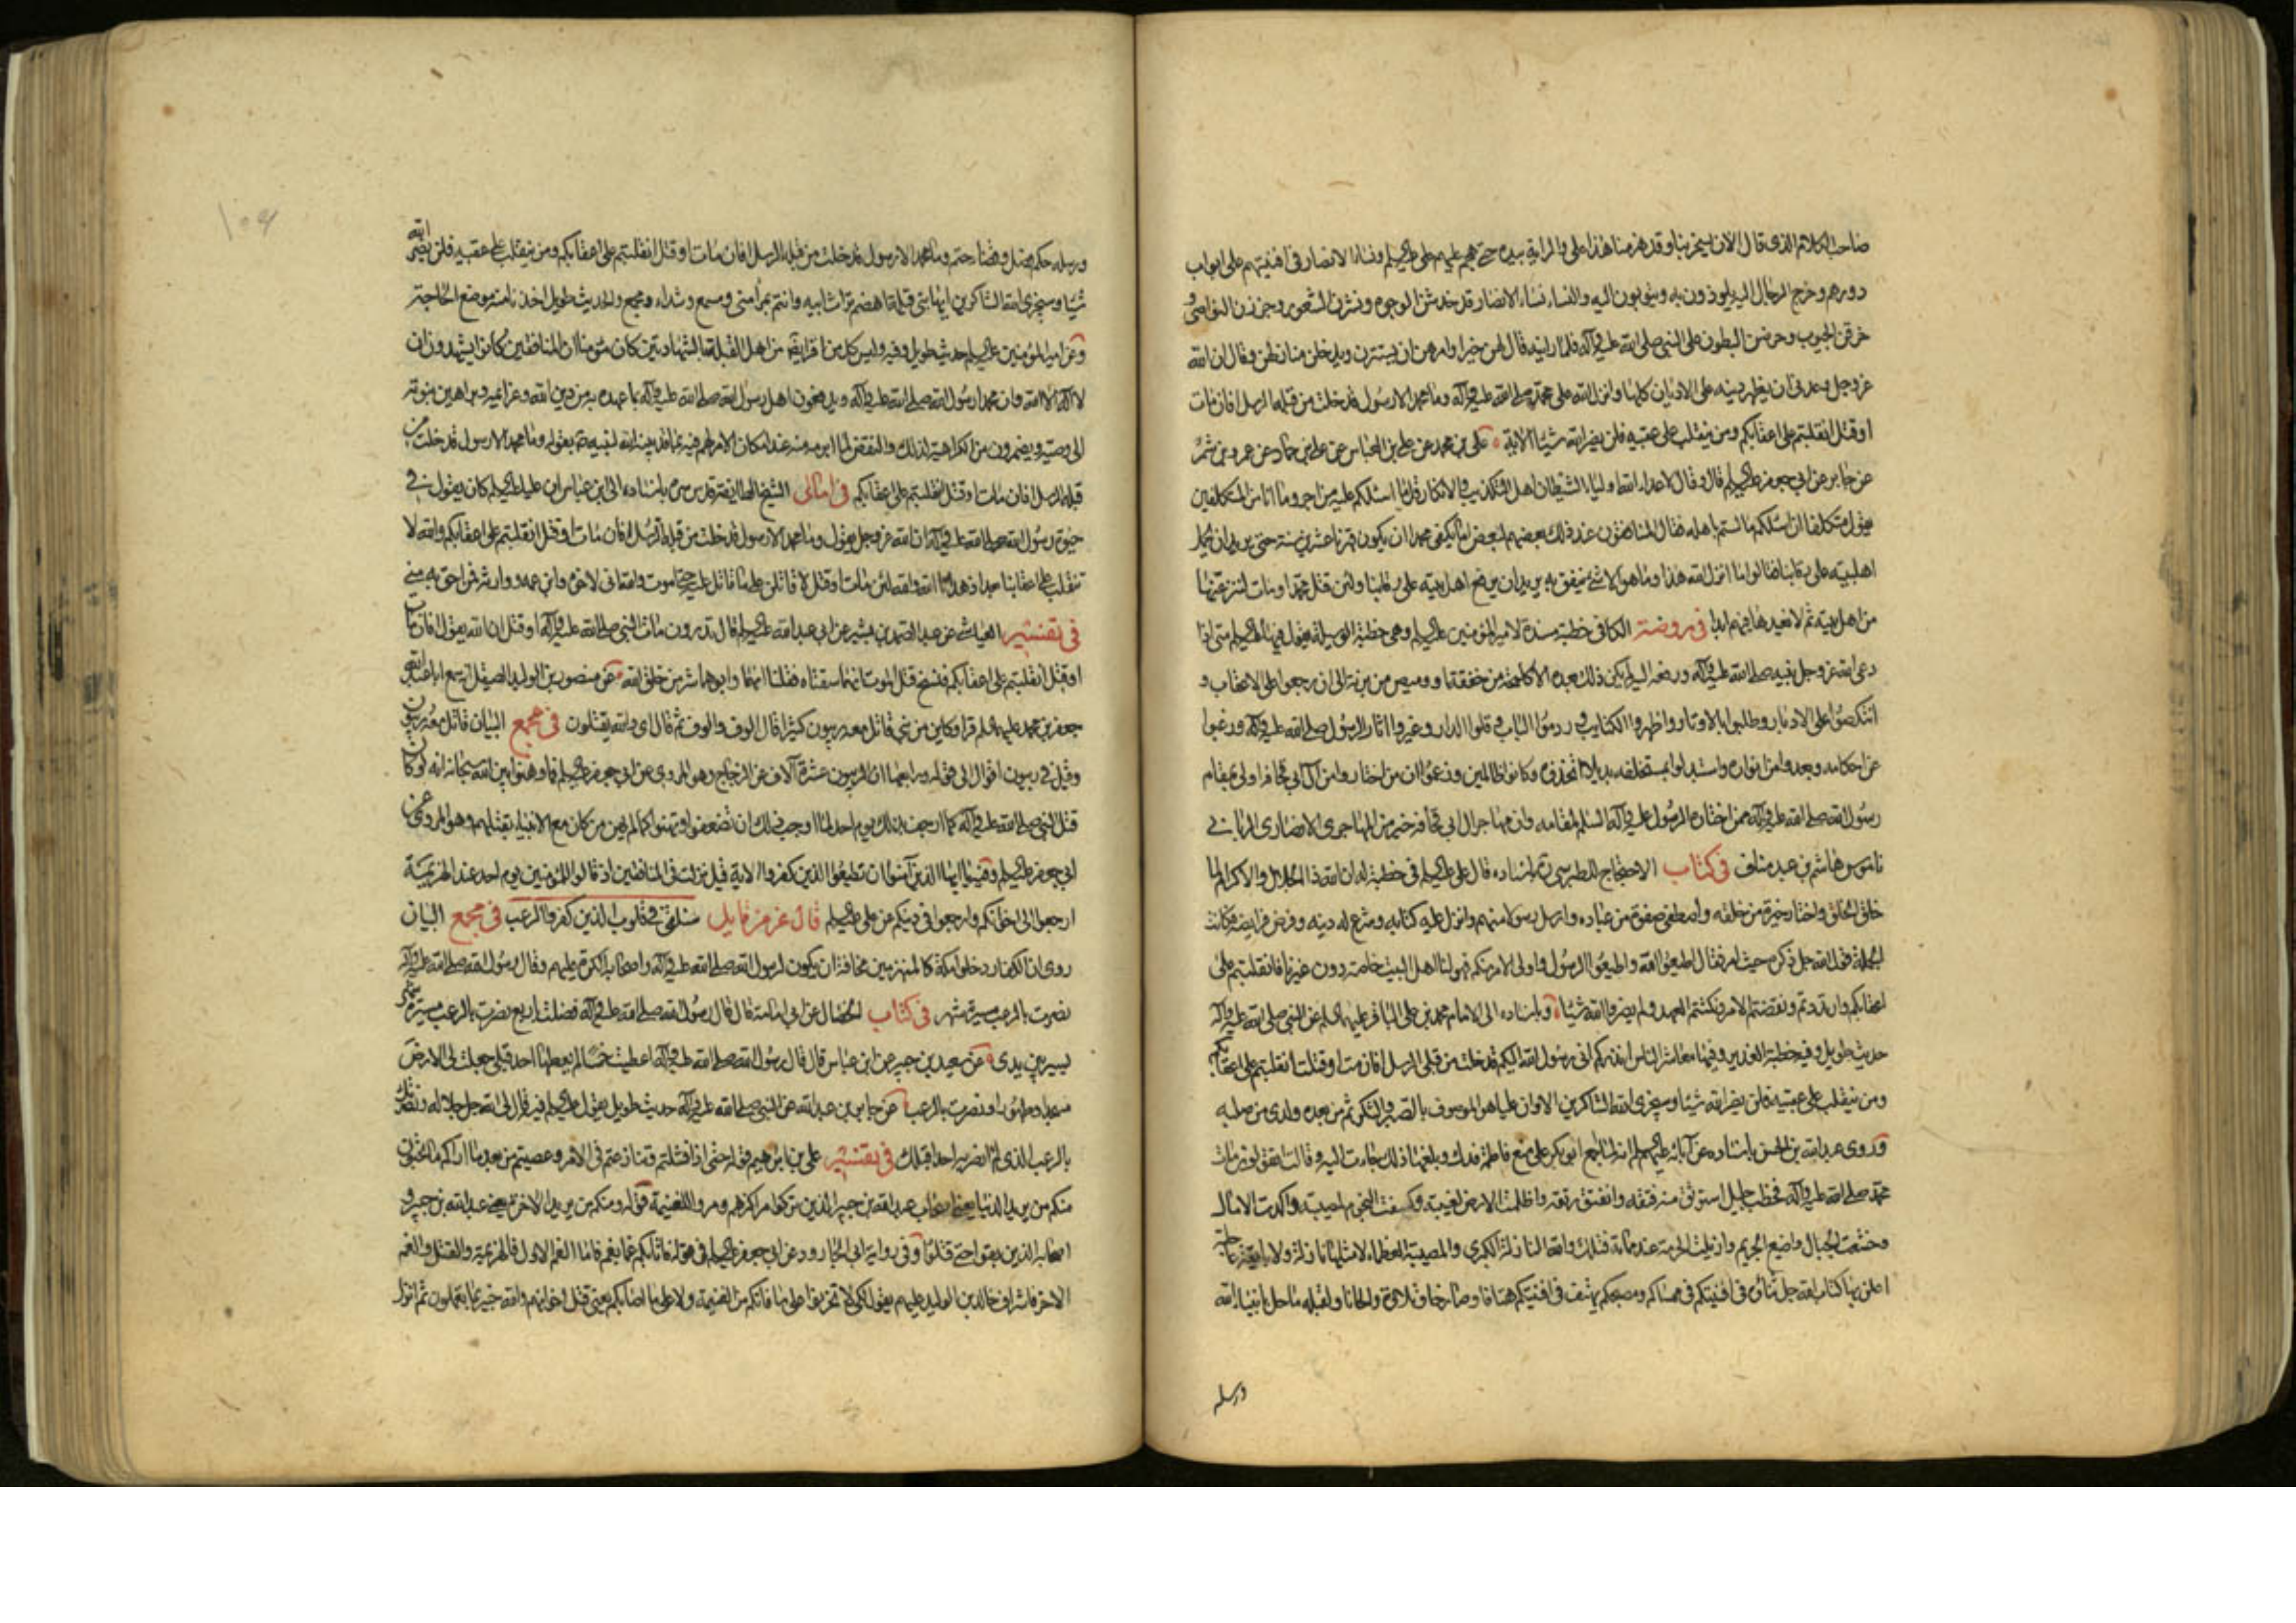 صاحب الكلام الذى قال الان يسخر بنا وقد هزمنا هذا على والراية بيده حتى هجم عليهم على عليه السلم ونادى الانصار فى افنيتهم على ابواب
دورهم وخرج الرجال اليه يلوذون به ويثوبون اليه والنساء نساء الانصار قد خدشن الوجوه ونشرن الشعور وجززن النواصى و
خرقن الجيوب وحرضن البطون على النبى صلى الله عليه وآله فلما راينه قال لهن خيرا وامرهن ان يستترن ويدخلن منازلهن وقال ان الله
عز وجل وعدنى ان يظهر دينه على الاديان كلها وانزل الله على محمد صلى الله عليه وآله وما محمد الا رسول قد خلت من قبله الرسل افان مات
او قتل انقلبتم على اعقابكم ومن ينقلب على عقبيه فلن يضر الله شيئا الاية على بن محمد عن على بن العباس عن على بن حماد عن عمرو بن شمر
عن جابر عن ابى جعفر عليه السلم قال وقال لاعداء الله اولياء الشيطان اهل التكذيب والانكار قل ما اسئلكم عليه من اجر وما انا من المتكلفين
يقول متكلفا ان اسئلكم ما لستم باهله فقال المنافقون عند ذلك بعضهم لبعض اما يكفى محمدا ان يكون قهرنا عشرين سنة حتى يريد ان يحمل
اهل بيته على رقابنا فقالوا ما انزل الله هذا وما هو الا شئ يتقوله يريد ان يرفع اهل بيته على رقابنا ولئن قتل محمد او مات لننزعنها
من اهل بيته ثم لا نعيدها فيهم ابدا فى روضة الكافى خطبة مسندة لامير المؤمنين عليه السلم وهى خطبة الوسيلة يقول فيها عليه السلم حتى اذا
دعى الله عز وجل نبيه صلى الله عليه وآله ورفعه اليه لم يكن ذلك بعده الا كلمحة من خفقة او وميض من برقة الى ان رجعوا على الاعقاب و
انتكصوا على الادبار وطلبوا بالاوتار واظهروا الكتايب وردموا الباب وفلوا الدار وغيروا اثار الرسول صلى الله عليه وآله ورغبوا
عن احكامه وبعدوا من انواره واستبدلوا بمستخلفه بديلا اتخذوه وكانوا ظالمين وزعموا ان من اختاروا من آل ابى قحافة اولى بمقام
رسول الله صلى الله عليه وآله ممن اختاره الرسول عليه وآله السلم لمقامه وان مهاجر آل ابى قحافة خير من المهاجرى الانصارى الربانى
ناموس هاشم بن عبد مناف فى كتاب الاحتجاج للطبرسى ره باسناده قال على عليه السلم فى خطبة له ان الله ذا الجلال والاكرام لما
خلق الخلق واختار خيرة من خلقه واصطفى صفوة من عباده وارسل رسولا منهم وانزل عليه كتابه وشرع له دينه وفرض فرايضه فكانت
الجملة قول الله جل ذكره حيث امر فقال اطيعوا الله واطيعوا الرسول واولى الامر منكم فهو لنا اهل البيت خاصة دون غيرنا فانقلبتم على
اعقابكم وارتددتم ونقضتم الامر ونكثتم العهد ولم يضروا الله شيئا وباسناده الى الامام محمد بن على الباقر عليهما السلم عن النبى صلى الله عليه وآله
حديث طويل وفيه خطبة الغدير وفيها معاشر الناس انذركم انى رسول الله اليكم قد خلت من قبلى الرسل افان مت او قتلت انقلبتم على اعقابكم
ومن ينقلب على عقبيه فلن يضر الله شيئا وسيجزى الله الشاكرين الا وان عليا هو الموصوف بالصبر والشكر ثم من بعده ولدى من صلبه
وروى عبد الله بن الحسن باسناده عن آبائه عليهم السلم انه لما اجمع ابو بكر على منع فاطمة فدك وبلغها ذلك جاءت اليه وقالت له اتقول مات
محمد صلى الله عليه وآله فخطب جليل استوثق منه فتقه وانفتق رتقه واظلمت الارض لغيبته وكسفت النجوم لمصيبته واكدت الامال
وخشعت الجبال واضيع الحريم وازيلت الحرمة عند مماته فتلك والله النازلة الكبرى والمصيبة العظمى لا مثلها نازلة ولا بايقة عاجلة
اعلن بها كتاب الله جل ثناؤه فى افنيتكم فى ممساكم ومصبحكم يهتف فى افنيتكم هتافا وصراخا وتلاوة والحانا ولقبله ما حل بانبياء الله
ورسله
ورسله حكم فصل وقضاء حتم وما محمد الا رسول قد خلت من قبله الرسل افان مات او قتل انقلبتم على اعقابكم ومن ينقلب على عقبيه فلن يضر الله
شيئا وسيجزى الله الشاكرين ايها بنى قيلة اهضم تراث ابيه وانتم بمرآى منى ومسمع ومبتداء ومجمع والحديث طويل اخذنا منه موضع الحاجة
وعن امير المؤمنين عليه السلم حديث طويل وفيه وليس كل من اقر ايضا من اهل القبلة بالشهادتين كان مؤمنا ان المنافقين كانوا يشهدون ان
لا اله الا الله وان محمدا رسول الله صلى الله عليه وآله ويدفعون اهل رسول الله صلى الله عليه وآله بما عهد به من دين الله وعزائمه وبراهين نبوته
الى وصيه ويضمرون من الكراهية لذلك والنقض لما ابرمه منه عند امكان الامر لهم فيه بما قد بينه الله لنبيه بقوله وما محمد الا رسول قد خلت من
قبله الرسل افان مات او قتل انقلبتم على اعقابكم فى امالى الشيخ الطايفة قدس سره باسناده الى ابن عباس ان عليا عليه السلم كان يقول فى
حيوة رسول الله صلى الله عليه وآله ان الله عز وجل يقول وما محمد الا رسول قد خلت من قبله الرسل افان مات او قتل انقلبتم على اعقابكم والله لا
ننقلب على اعقابنا بعد اذ هدانا الله والله لئن مات او قتل لاقاتلن على ما قاتل عليه حتى اموت والله انى لاخوه وابن عمه ووارثه فمن احق به منى
فى تفسير العياشى عن عبد الصمد بن بشير عن ابى عبد الله عليه السلم قال تدرون مات النبى صلى الله عليه وآله او قتل ان الله يقول افان مات
او قتل انقلبتم على اعقابكم فسم قبل الموت انهما سقتاه فقلنا انهما وابوهما شر من خلق الله عن منصور بن الوليد الصيقل انه سمع ابا عبد الله
جعفر بن محمد عليهما السلم قرا وكاين من نبى قاتل معه ربيون كثير قال الوف والوف ثم قال اى والله يقتلون فى مجمع البيان قاتل معه ربيون
وقيل فى ربيون اقوال الى قوله ورابعها ان الربيون عشرة آلاف عن الزجاج وهو المروى عن ابى جعفر عليه السلم فما وهنوا بين الله سبحانه انه لو كان
قتل النبى صلى الله عليه وآله كما ارجف بذلك يوم احد لما اوجب ذلك ان تضعفوا وتهنوا كما لم يهن من كان مع الانبياء بقتلهم وهو المروى عن
ابى جعفر عليه السلم وفيه يا ايها الذين آمنوا ان تطيعوا الذين كفروا الاية قيل نزلت فى المنافقين اذ قالوا للمؤمنين يوم احد عند الهزيمة
ارجعوا الى اخوانكم وارجعوا فى دينكم عن على عليه السلم قال عز من قايل سنلقى فى قلوب الذين كفروا الرعب فى مجمع البيان
روى ان الكفار دخلوا مكة كالمنهزمين مخافة ان يكون لرسول الله صلى الله عليه وآله واصحابه الكرة عليهم وقال رسول الله صلى الله عليه وآله
نصرت بالرعب مسيرة شهر فى كتاب الخصال عن ابى امامة قال قال رسول الله صلى الله عليه وآله فضلت باربع نصرت بالرعب مسيرة شهر
يسير بين يدى عن سعيد بن جبير عن ابن عباس قال قال رسول الله صلى الله عليه وآله اعطيت خمسا لم يعطها احد قبلى جعلت لى الارض
مسجدا وطهورا ونصرت بالرعب عن جابر بن عبد الله عن النبى صلى الله عليه وآله حديث طويل يقول عليه السلم فيه قال لى الله جل جلاله ونصرتك
بالرعب الذى لم انصر به احدا قبلك فى تفسير على بن ابرهيم قوله حتى اذا فشلتم وتنازعتم فى الامر وعصيتم من بعد ما اراكم ما تحبون
منكم من يريد الدنيا يعنى اصحاب عبد الله بن جبير الذين تركوا مراكزهم ومروا للغنيمة قوله ومنكم من يريد الاخرة يعنى عبد الله بن جبير و
اصحابه الذين بقوا حتى قتلوا وفى رواية ابى الجارود عن ابى جعفر عليه السلم فى قوله فاثابكم غما بغم فاما الغم الاول فالهزيمة والقتل والغم
الاخر فاشراف خالد بن الوليد عليهم يقول لكيلا تحزنوا على ما فاتكم من الغنيمة ولا على ما اصابكم يعنى قتل اخوانهم والله خبير بما تعملون ثم انزل